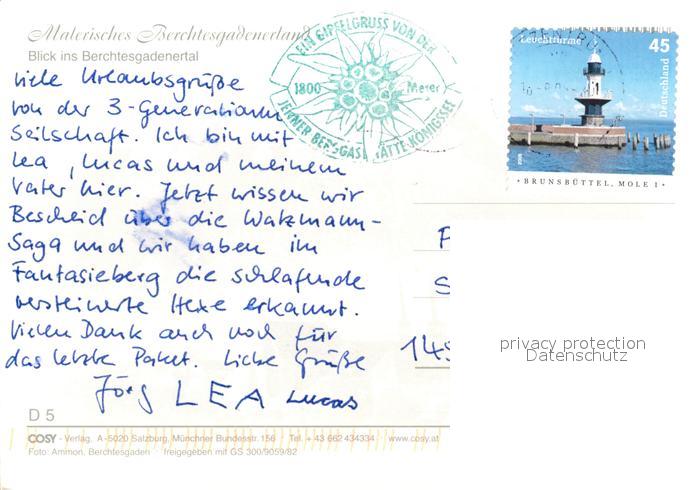 Malerisches Berchtesgadenerland
Blick ins Berchtesgadenertal
viele Urlaubsgrüße
von der 3-Generationen
Seilschaft. Ich bin mit
Lea, Lucas und meinem
Vater hier. Jetzt wissen wir
Bescheid über die Watzmann-
Saga und wir haben im
Fantasieberg die schlafende
versteinerte Hexe erkannt.
Vielen Dank auch noch für
das letzte Paket. Liebe Grüße
Jörg LEA Lucas
D 5
COSY - Verlag, A-5020 Salzburg, Münchner Bundesstr. 156 · Tel. + 43 662 434334 · www.cosy.at
Foto: Ammon, Berchtesgaden · freigegeben mit GS 300/9059/82
EIN GIPFELGRUSS VON DER
1800 Meter
JENNER BERGGASTSTÄTTE-KÖNIGSSEE
Leuchttürme
45
Deutschland
· BRUNSBÜTTEL, MOLE 1 ·
P
S
145
privacy protection
Datenschutz